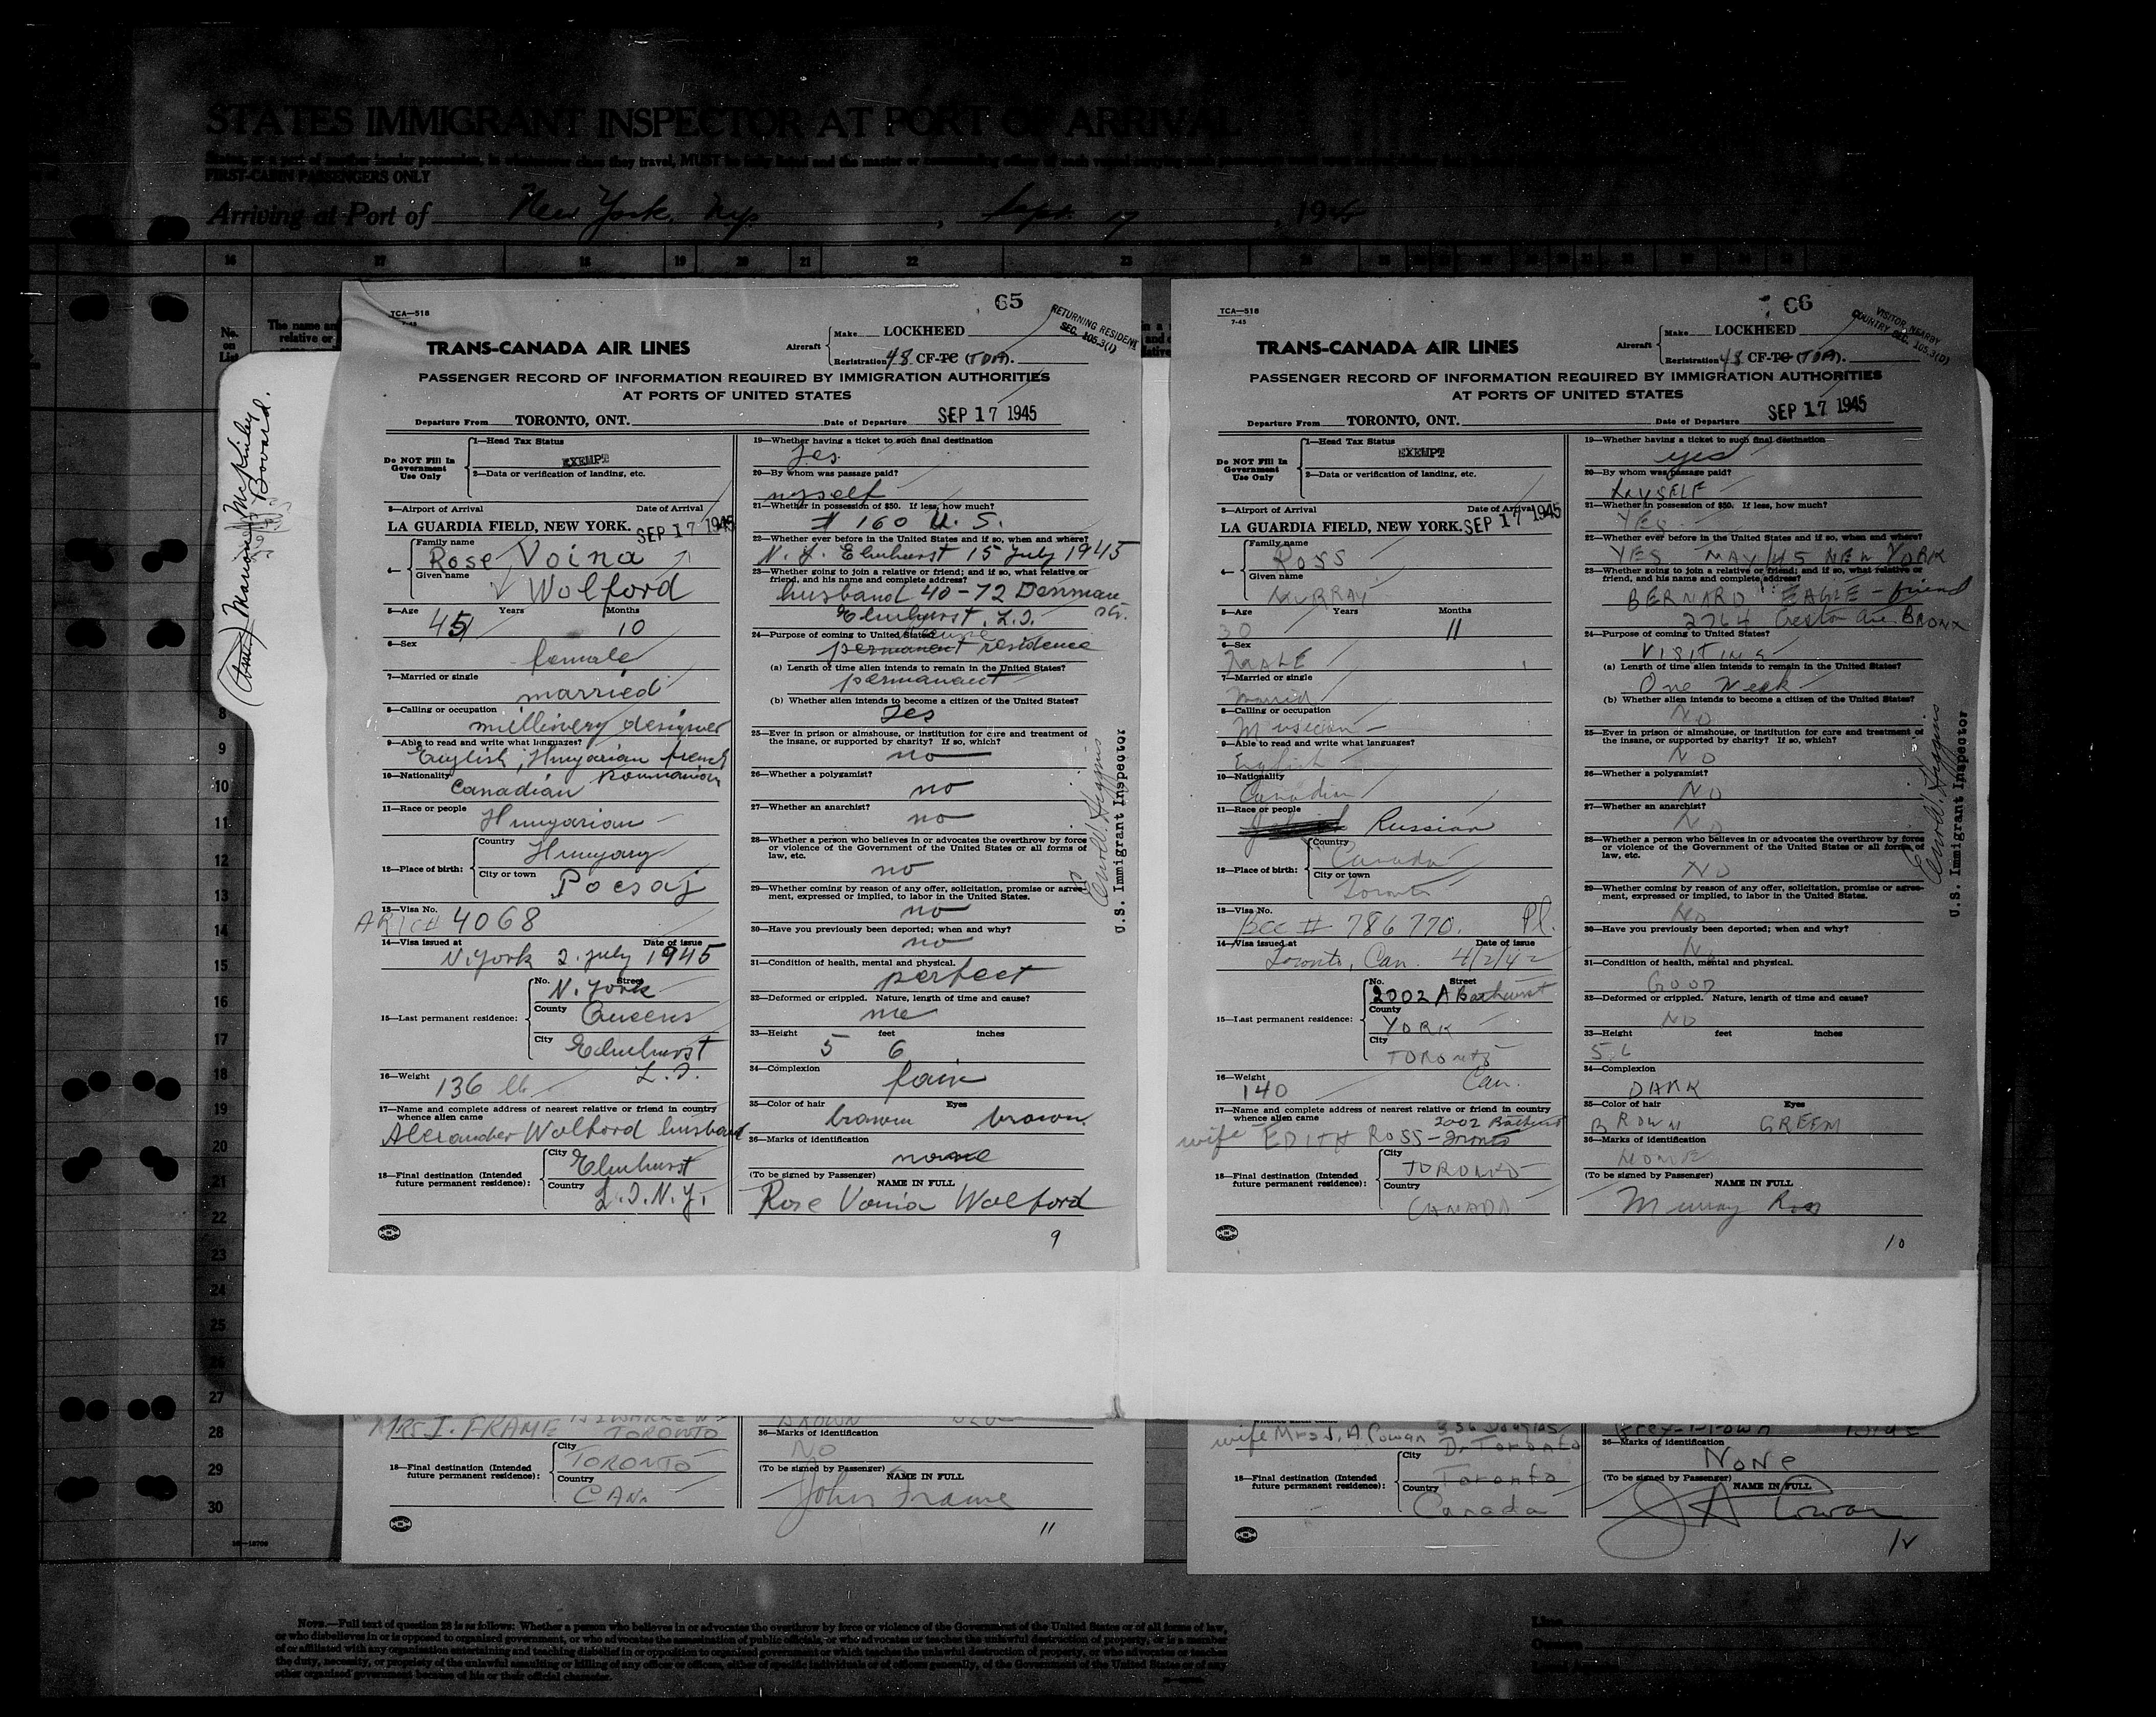 STATES IMMIGRANT INSPECTOR AT PORT OF ARRIVAL
FIRST-CABIN PASSENGERS ONLY
Arriving at Port of New York, Sept. 17, 194
16 17 18 19 20 21 22 23
No. on List
The name an
relative or
Marion McKinley
Bovaird.
65
TCA—518
7-45
RETURNING RESIDENT
SEC. 105.3(1)
Aircraft
Make LOCKHEED
Registration 48 CF-TC (TDA).
TRANS-CANADA AIR LINES
PASSENGER RECORD OF INFORMATION REQUIRED BY IMMIGRATION AUTHORITIES
AT PORTS OF UNITED STATES
Departure From TORONTO, ONT. Date of Departure SEP 17 1945
Do NOT Fill In Government Use Only
1—Head Tax Status
EXEMPT
2—Data or verification of landing, etc.
3—Airport of Arrival Date of Arrival
LA GUARDIA FIELD, NEW YORK. SEP 17 1945
4— Family name
Rose Voina
Given name
Wolford
5—Age 45 Years Months 10
6—Sex
female
7—Married or single
married
8—Calling or occupation
millinery designer
9—Able to read and write what languages?
English, Hungarian french
Roumanian
10—Nationality
Canadian
11—Race or people
Hungarian
12—Place of birth:
Country
Hungary
City or town
Pocsaj
13—Visa No.
4068
14—Visa issued at Date of issue
N. York 2. July 1945
15—Last permanent residence:
No. Street
N. York
County
Queens
City
Elmhurst
L. I.
16—Weight
136 lb
17—Name and complete address of nearest relative or friend in country
whence alien came
Alexander Wolford husband
18—Final destination (Intended
future permanent residence):
City
Elmhurst
Country
L. I. N. Y.
19—Whether having a ticket to such final destination
Yes
20—By whom was passage paid?
myself
21—Whether in possession of $50. If less, how much?
$ 160 U. S.
22—Whether ever before in the United States and if so, when and where?
N. Y. Elmhurst 15 July 1945
23—Whether going to join a relative or friend; and if so, what relative or
friend, and his name and complete address?
husband 40-72 Denman
Elmhurst. L. I. str.
24—Purpose of coming to United States?
permanent residence
(a) Length of time alien intends to remain in the United States?
permanent
(b) Whether alien intends to become a citizen of the United States?
Yes
25—Ever in prison or almshouse, or institution for care and treatment of
the insane, or supported by charity? If so, which?
no
26—Whether a polygamist?
no
27—Whether an anarchist?
no
28—Whether a person who believes in or advocates the overthrow by force
or violence of the Government of the United States or all forms of
law, etc.
no
29—Whether coming by reason of any offer, solicitation, promise or agree-
ment, expressed or implied, to labor in the United States.
no
30—Have you previously been deported; when and why?
no
31—Condition of health, mental and physical.
perfect
32—Deformed or crippled. Nature, length of time and cause?
33—Height feet inches
5 6
34—Complexion
fair
35—Color of hair Eyes
brown brown.
36—Marks of identification
none
(To be signed by Passenger) NAME IN FULL
Rose Voina Wolford
9
U.S. Immigrant Inspector
66
TCA—518
7-45
VISITOR NEARBY
COUNTRY SEC. 105.3(D)
Aircraft
Make LOCKHEED
Registration 48 CF-TC (TDA).
TRANS-CANADA AIR LINES
PASSENGER RECORD OF INFORMATION REQUIRED BY IMMIGRATION AUTHORITIES
AT PORTS OF UNITED STATES
Departure From TORONTO, ONT. Date of Departure SEP 17 1945
Do NOT Fill In Government Use Only
1—Head Tax Status
EXEMPT
2—Data or verification of landing, etc.
3—Airport of Arrival Date of Arrival
LA GUARDIA FIELD, NEW YORK. SEP 17 1945
4— Family name
ROSS
Given name
MURRAY
5—Age 30 Years Months 11
6—Sex
MALE
7—Married or single
Married
8—Calling or occupation
Musician
9—Able to read and write what languages?
English
10—Nationality
Canadian
11—Race or people
Russian
12—Place of birth:
Country
Canada
City or town
Toronto
13—Visa No.
BCC # 786770. Pl.
14—Visa issued at Date of issue
Toronto, Can. 4/2/42
15—Last permanent residence:
No. Street
2002 A Bathurst
County
YORK
City
TORONTO
Can.
16—Weight
140
17—Name and complete address of nearest relative or friend in country
whence alien came
2002 Bathurst
wife EDITH ROSS - Toronto
18—Final destination (Intended
future permanent residence):
City
TORONTO
Country
CANADA
19—Whether having a ticket to such final destination
yes
20—By whom was passage paid?
MYSELF
21—Whether in possession of $50. If less, how much?
Yes
22—Whether ever before in the United States and if so, when and where?
YES MAY/45 NEW YORK
23—Whether going to join a relative or friend; and if so, what relative or
friend, and his name and complete address?
BERNARD EAGLE - friend
2764 Creston Ave. BRONX
24—Purpose of coming to United States?
VISITING
(a) Length of time alien intends to remain in the United States?
One Week
(b) Whether alien intends to become a citizen of the United States?
NO
25—Ever in prison or almshouse, or institution for care and treatment of
the insane, or supported by charity? If so, which?
NO
26—Whether a polygamist?
NO
27—Whether an anarchist?
NO
28—Whether a person who believes in or advocates the overthrow by force
or violence of the Government of the United States or all forms of
law, etc.
NO
29—Whether coming by reason of any offer, solicitation, promise or agree-
ment, expressed or implied, to labor in the United States.
NO
30—Have you previously been deported; when and why?
No
31—Condition of health, mental and physical.
GOOD
32—Deformed or crippled. Nature, length of time and cause?
NO
33—Height feet inches
5 6
34—Complexion
DARK
35—Color of hair Eyes
BROWN GREEN
36—Marks of identification
NONE
(To be signed by Passenger) NAME IN FULL
Murray Ross
10
U.S. Immigrant Inspector
8
9
10
11
12
13
14
15
16
17
18
19
20
21
22
23
24
25
26
27
28
29
30
MRS. J. FRAME
TORONTO
18—Final destination (Intended
future permanent residence):
City
TORONTO
Country
CAN.
BROWN
36—Marks of identification
No
(To be signed by Passenger) NAME IN FULL
John Frame
11
wife Mrs J. A Cowan 336 Douglas
Dr Toronto
18—Final destination (Intended
future permanent residence):
City
Toronto
Country
Canada
Grey-Brown
36—Marks of identification
None
(To be signed by Passenger) NAME IN FULL
J A Cowan
12
NOTE.—Full text of question 28 is as follows: Whether a person who believes in or advocates the overthrow by force or violence of the Government of the United States or of all forms of law,
or who disbelieves in or is opposed to organized government, or who advocates the assassination of public officials, or who advocates or teaches the unlawful destruction of property, or is a member
of or affiliated with any organization entertaining and teaching disbelief in or opposition to organized government or which teaches the unlawful destruction of property, or who advocates or teaches
the duty, necessity, or propriety of the unlawful assaulting or killing of any officer or officers, either of specific individuals or of officers generally, of the Government of the United States or of any
other organized government because of his or their official character.